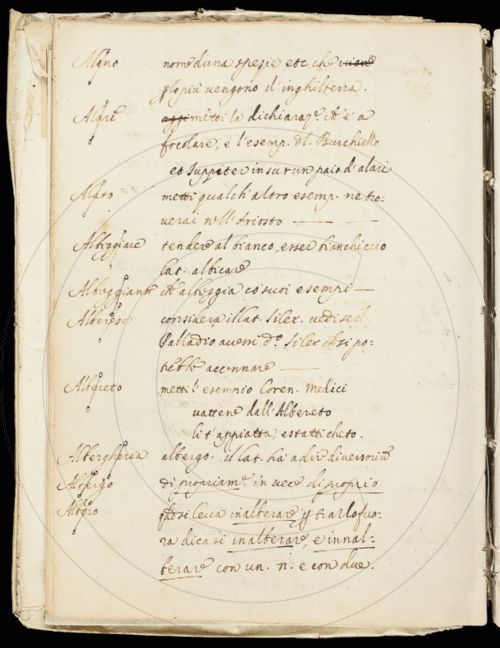 Alano nome d'una spezie etc che viene
p lo più vengono d'inghilterra.
Alare aggi metti la dichiaraz.e ch'è a
focolare, e l'esemp. dl. Burchiello
et Juppiter in su r un paio d'alari
Alato metti qualch'altro esemp. ne tro-
verai nell'Ariosto
Albeggiare tendere al bianco, esser bianchiccio
lat. albicare
Albeggiante ch' albeggia co' suoi esempi
considera il lat. Siler. vedi se il
Palladio accennare
Albereto metti l'esempio Loren. Medici
vattene dall'Albereto
li t'appiatta, e statti cheto.
Albergheria albergo. il lat. ha a dir diversorium
Albergo di propriam.e in vece di proprio
inalberare p trarlo fuo-
ra dicasi inalberare, e innal-
berare con un. n. e con due.